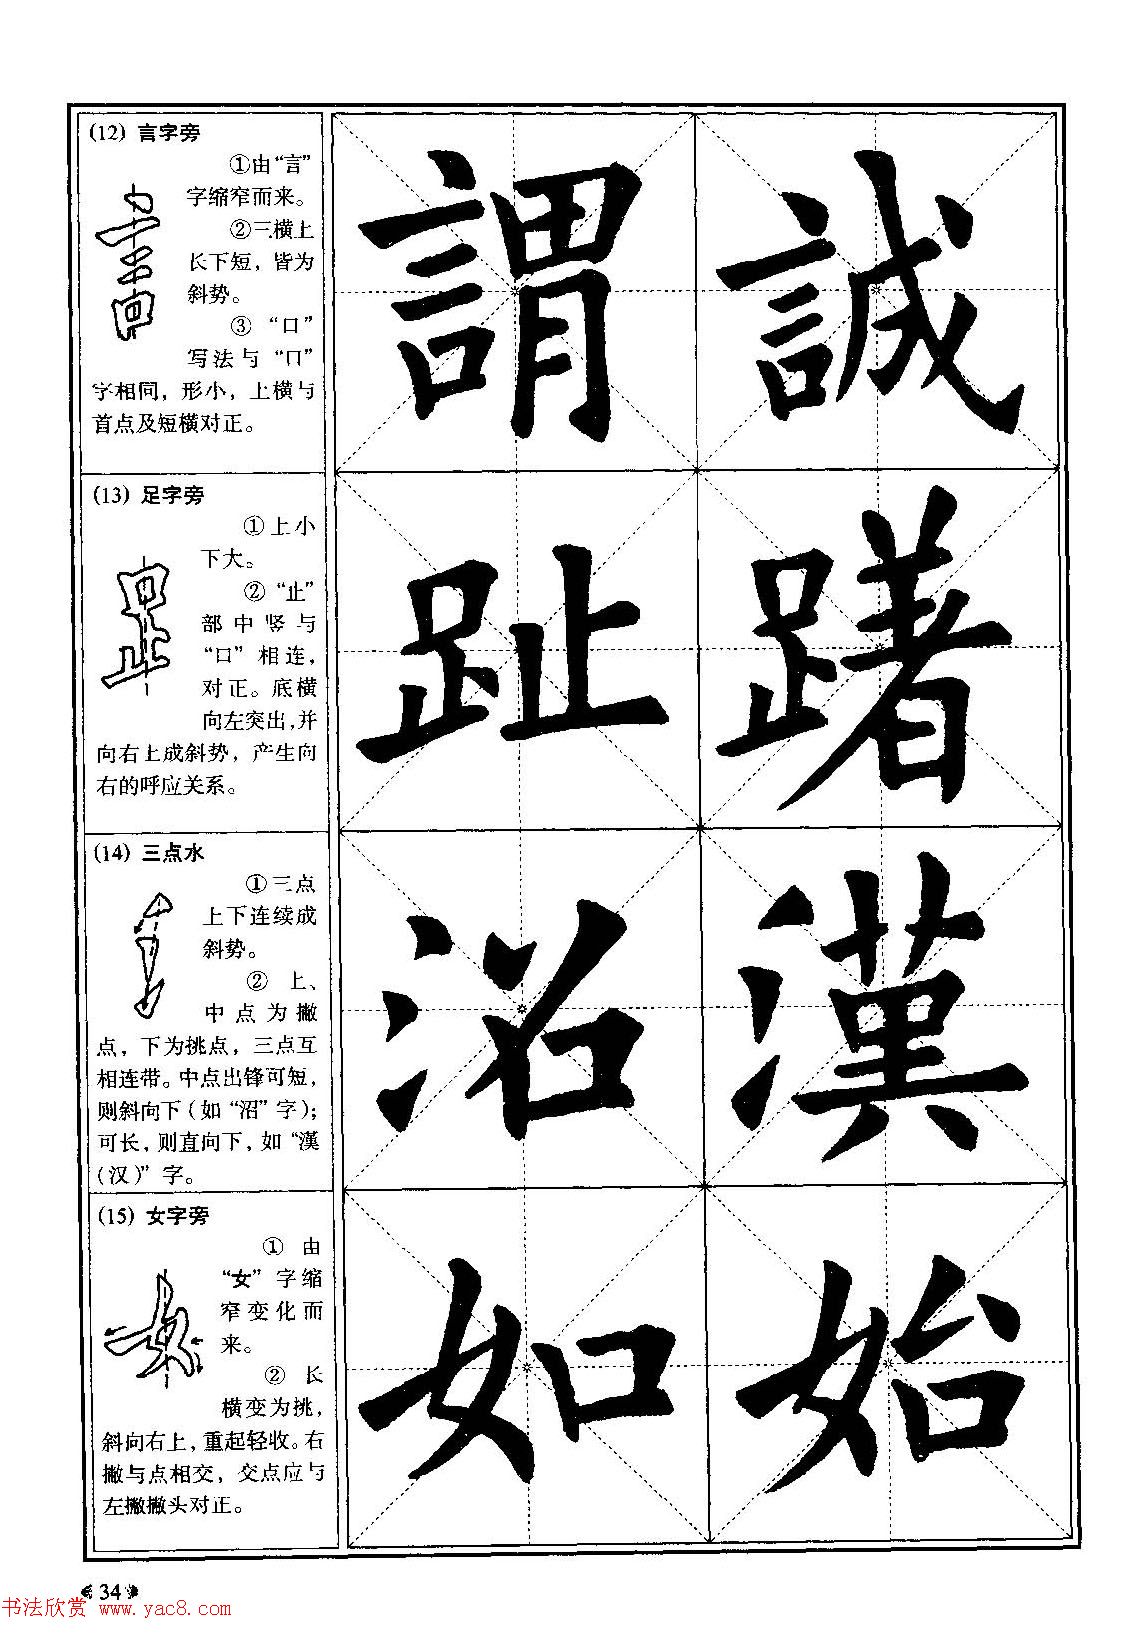 (12) 言字旁
①由“言”
字缩窄而来。
②三横上
长下短，皆为
斜势。
③ “口”
写法与“口”
字相同，形小，上横与
首点及短横对正。
謂 誠
(13) 足字旁
①上小
下大。
②“止”
部中竖与
“口”相连，
对正。底横
向左突出，并
向右上成斜势，产生向
右的呼应关系。
趾 躇
(14) 三点水
①三点
上下连续成
斜势。
② 上、
中点为撇
点，下为挑点，三点互
相连带。中点出锋可短，
则斜向下（如“沼”字）；
可长，则直向下，如“漢
（汉）”字。
沼 漢
(15) 女字旁
① 由
“女”字缩
窄变化而
来。
② 长
横变为挑，
斜向右上，重起轻收。右
撇与点相交，交点应与
左撇撇头对正。
如 始
34
书法欣赏 www.yac8.com